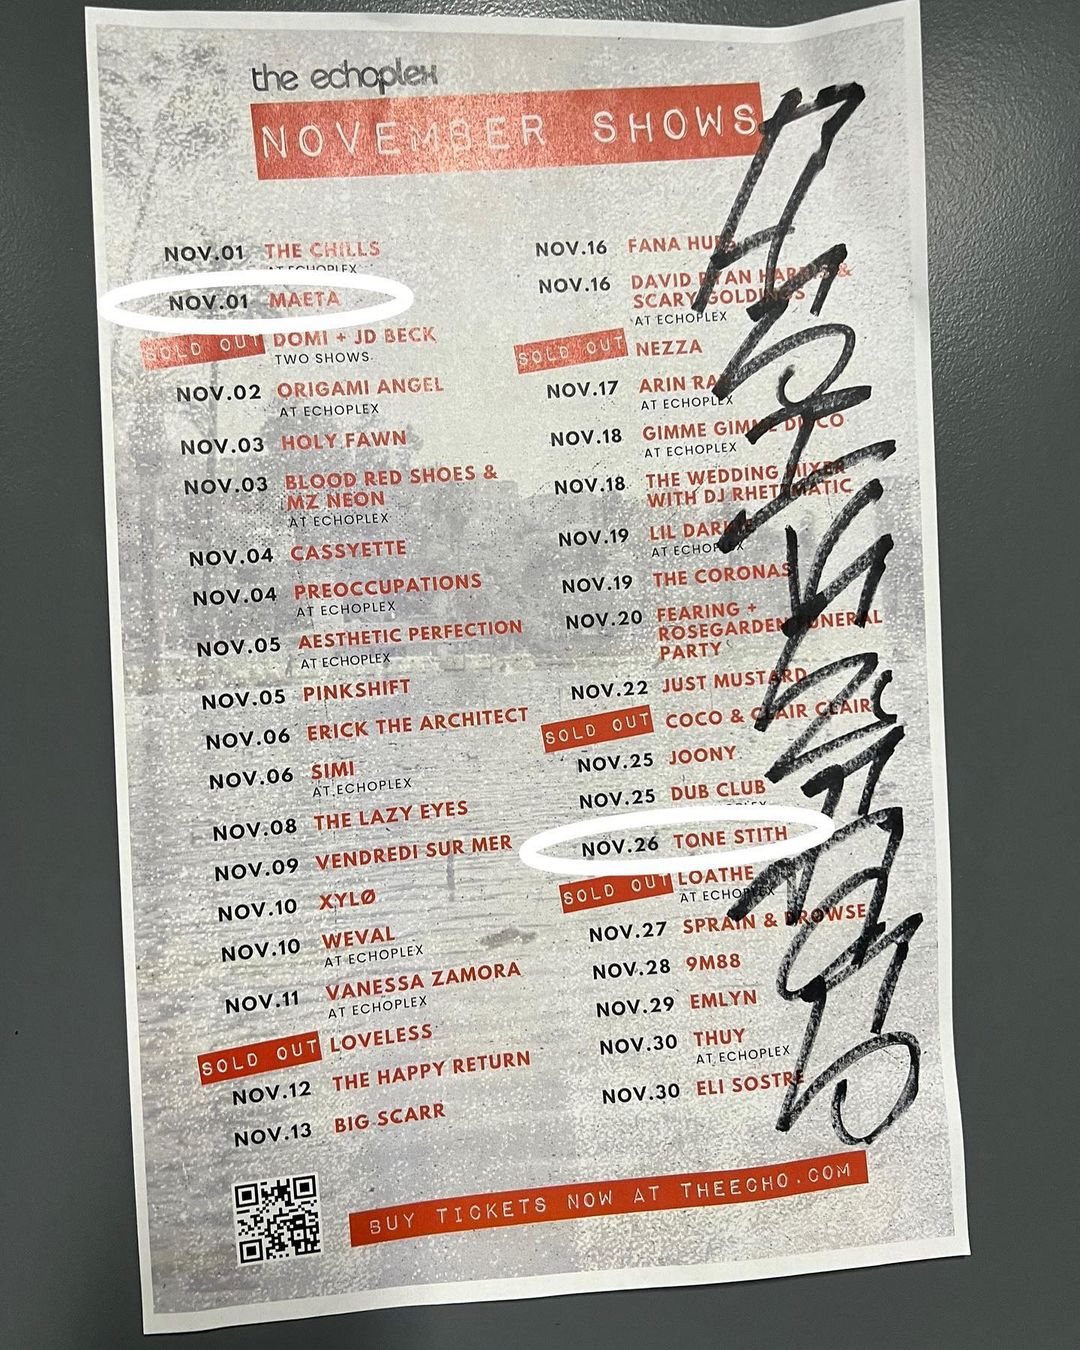 the echoplex
NOVEMBER SHOWS
NOV.01 THE CHILLS
AT ECHOPLEX
NOV.01 MAETA
SOLD OUT DOMI + JD BECK
TWO SHOWS
NOV.02 ORIGAMI ANGEL
AT ECHOPLEX
NOV.03 HOLY FAWN
NOV.03 BLOOD RED SHOES &
MZ NEON
AT ECHOPLEX
NOV.04 CASSYETTE
NOV.04 PREOCCUPATIONS
AT ECHOPLEX
NOV.05 AESTHETIC PERFECTION
AT ECHOPLEX
NOV.05 PINKSHIFT
NOV.06 ERICK THE ARCHITECT
NOV.06 SIMI
AT ECHOPLEX
NOV.08 THE LAZY EYES
NOV.09 VENDREDI SUR MER
NOV.10 XYLØ
NOV.10 WEVAL
AT ECHOPLEX
NOV.11 VANESSA ZAMORA
AT ECHOPLEX
SOLD OUT LOVELESS
NOV.12 THE HAPPY RETURN
NOV.13 BIG SCARR
NOV.16 FANA HUES
NOV.16 DAVID RYAN HARRIS &
SCARY GOLDINGS
AT ECHOPLEX
SOLD OUT NEZZA
NOV.17 ARIN RAY
AT ECHOPLEX
NOV.18 GIMME GIMME DISCO
AT ECHOPLEX
NOV.18 THE WEDDING MIXER
WITH DJ RHETTMATIC
NOV.19 LIL DARKIE
AT ECHOPLEX
NOV.19 THE CORONAS
NOV.20 FEARING +
ROSEGARDEN FUNERAL
PARTY
NOV.22 JUST MUSTARD
SOLD OUT COCO & CLAIR CLAIR
NOV.25 JOONY
NOV.25 DUB CLUB
NOV.26 TONE STITH
SOLD OUT LOATHE
AT ECHOPLEX
NOV.27 SPRAIN & DROWSE
NOV.28 9M88
NOV.29 EMLYN
NOV.30 THUY
AT ECHOPLEX
NOV.30 ELI SOSTRE
BUY TICKETS NOW AT THEECHO.COM